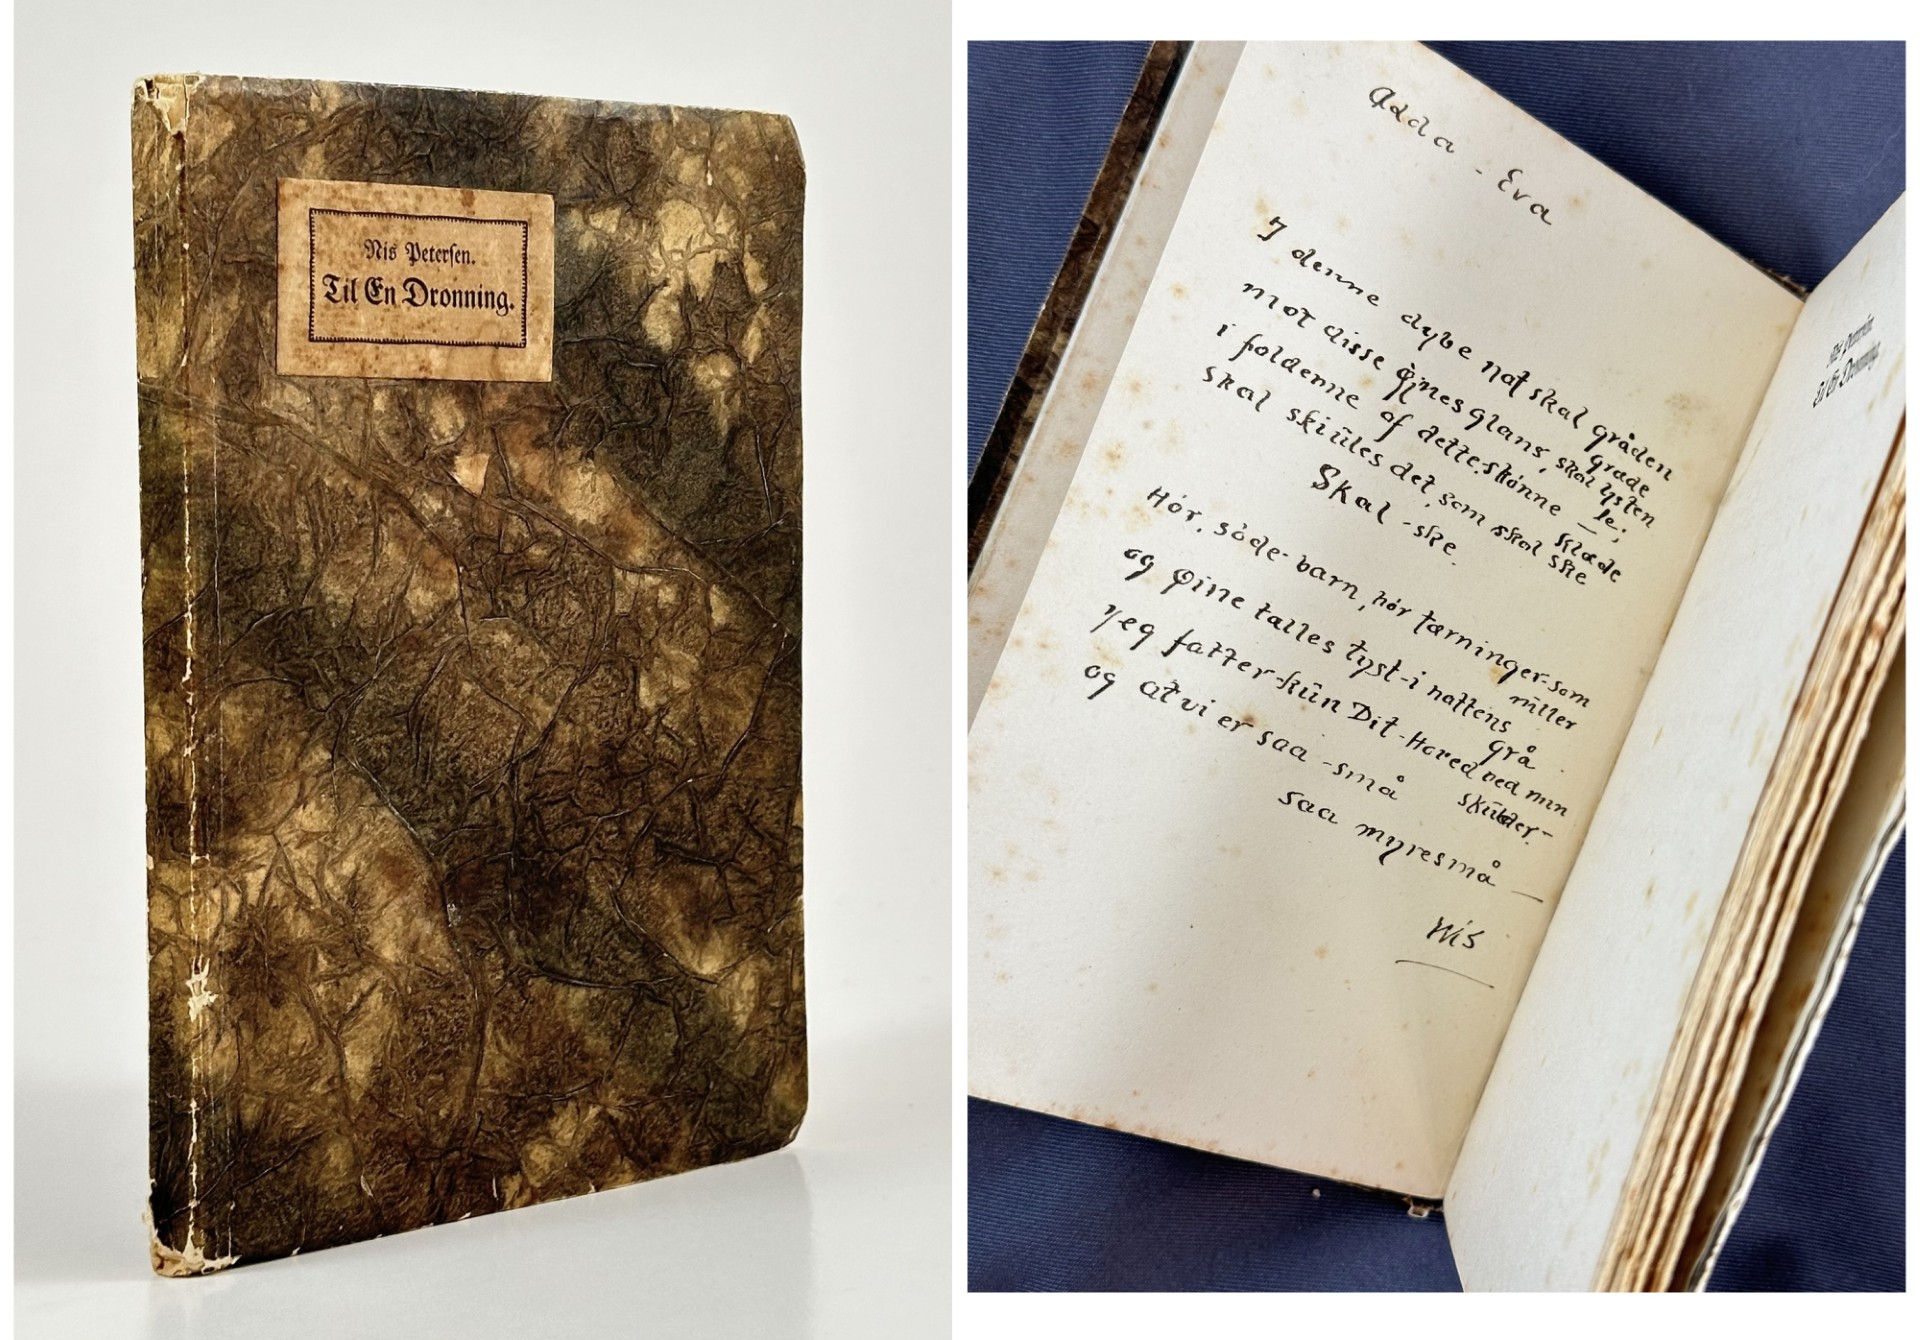 Nis Petersen.
Til En Dronning.
Adda - Eva
I denne dybe nat skal gråden
græde
mot disse øjnes glans, skal lysten
le;
i folderne af dette skønne
klæde
skal skiüles det, som skal ske
Skal - ske.
Hör, söde- barn, hör tærninger- som
rüller
og øine talles tyst- i nattens
grå.
Jeg fatter- kün Dit- Hoved ved min
skülder-
og at vi er saa - små
saa myresmå —
Nis
Nis Petersen.
Til En Dronning.